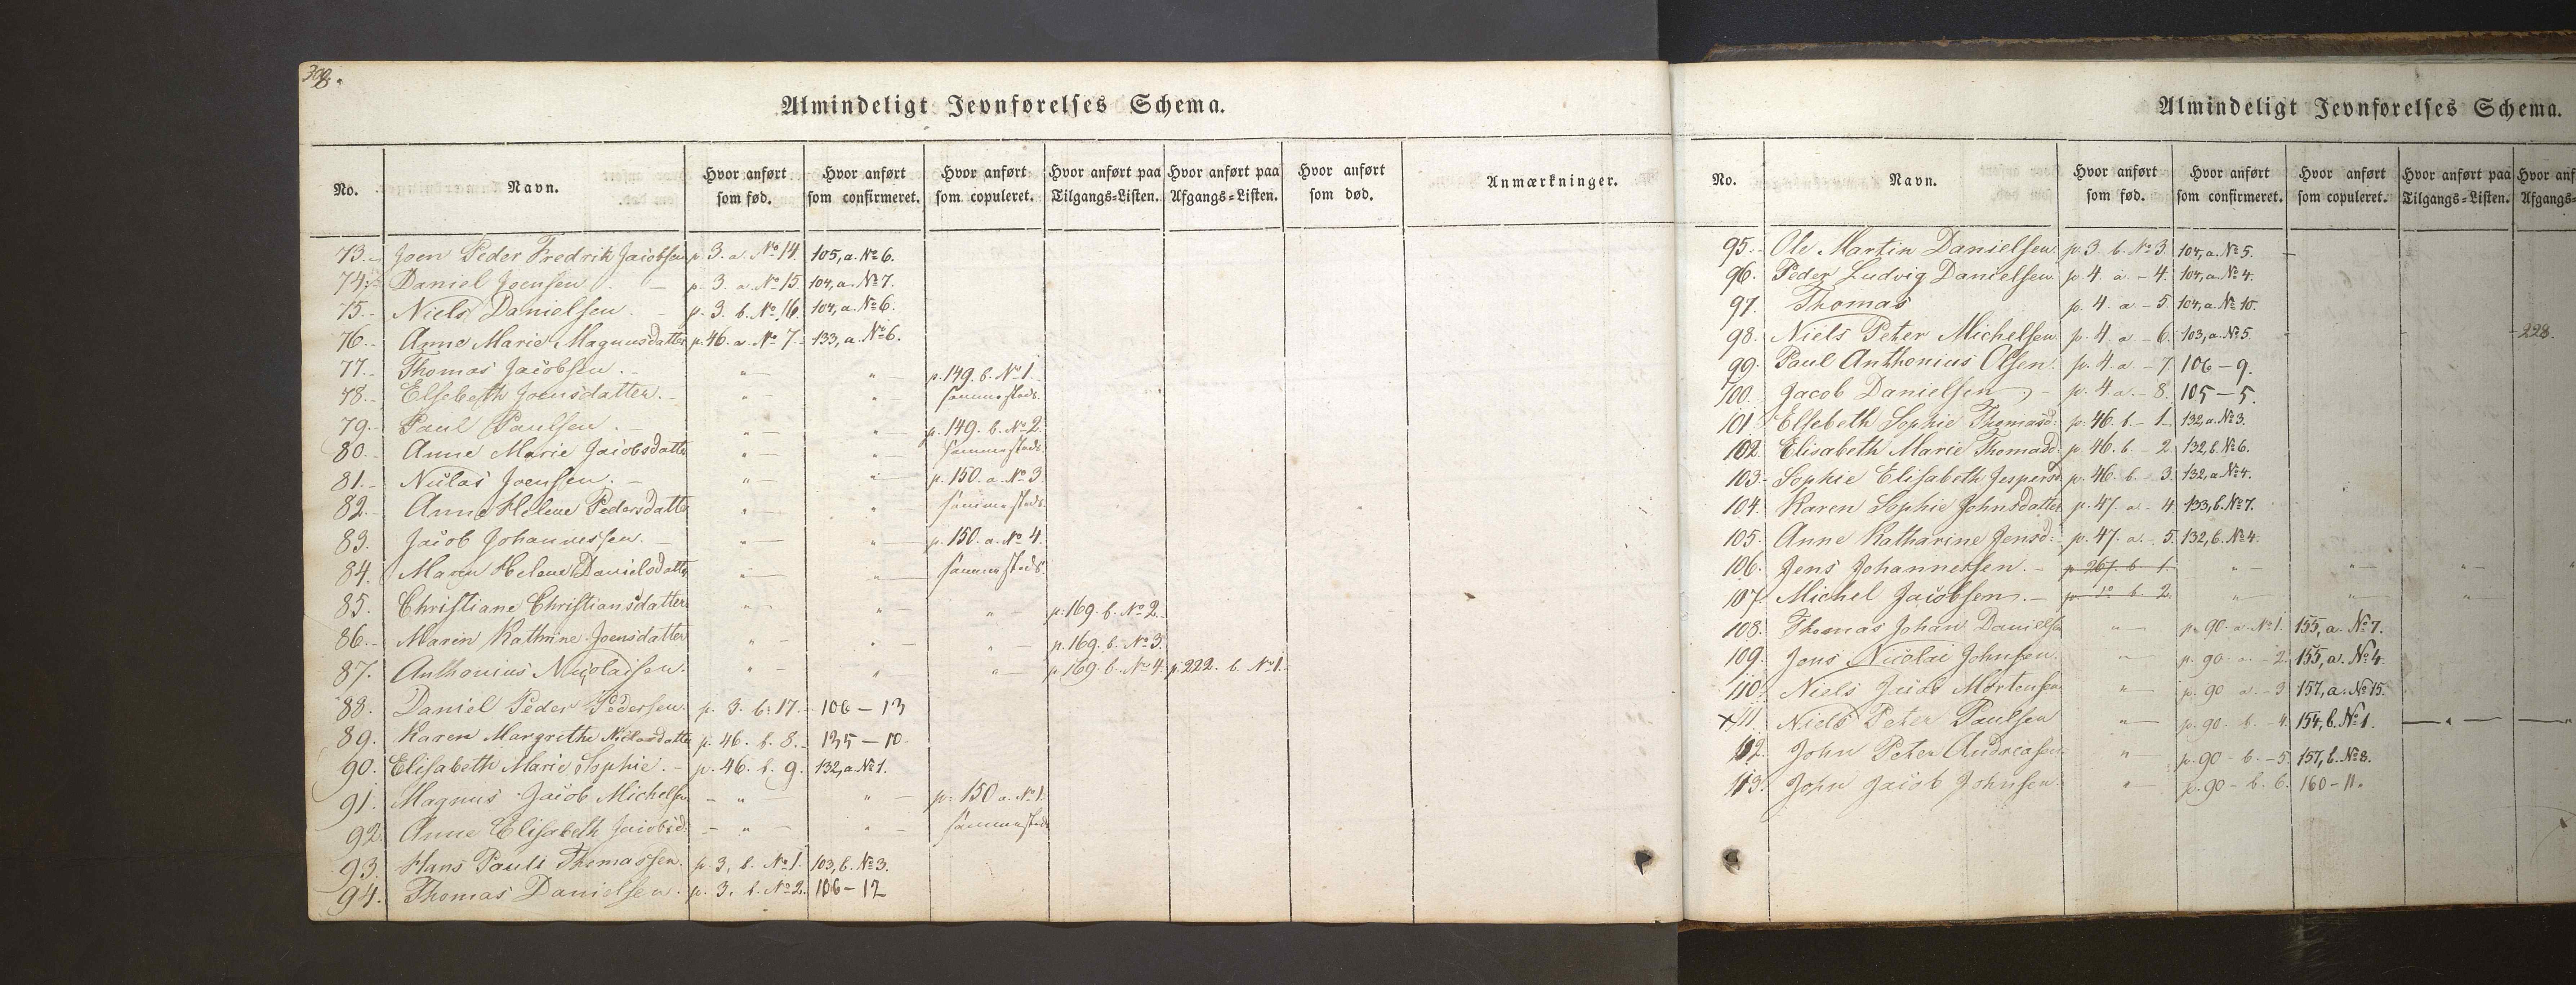 398.
Almindeligt Jevnførelses Schema.
No. Navn. Hvor anført som fød. Hvor anført som confirmeret. Hvor anført som copuleret. Hvor anført paa Tilgangs=Listen. Hvor anført paa Afgangs=Listen. Hvor anført som død. Anmærkninger.
73. Joen Peder Fredrik Jacobsen p. 3. a. No 14. 105, a. No 6.
74. Daniel Joensen. p. 3. a. No 15. 104, a. No 7.
75. Niels Danielsen. p. 3. b. No 16. 104, a. No 6.
76. Anne Marie Magnusdatter p. 46. a. No 7. 133, a. No 6.
77. Thomas Jacobsen. " " p. 149. b. No 1.
78. Elsebeth Joensdatter. " " sammesteds.
79. Paul Paulsen. " " p. 149. b. No 2.
80. Anne Marie Jacobsdatter " " sammesteds.
81. Niclas Joensen. " " p. 150. a. No 3.
82. Anne Helene Pedersdatter " " sammesteds.
83. Jacob Johannessen. " " p. 150. a. No 4.
84. Maren Helene Danielsdatter " " sammesteds.
85. Christiane Christiansdatter " " " p. 169. b. No 2.
86. Maren Kathrine Joensdatter " " " p. 169. b. No 3.
87. Anthonius Nicolaisen. " " " p. 169. b. No 4. p. 222. b. No 1.
88. Daniel Peder Pedersen. p. 3. b. 17. 106 - 13
89. Karen Margrethe Niclasdatter p. 46. b. 8. 135 - 10.
90. Elisabeth Marie Sophie. p. 46. b. 9. 132, a. No 1.
91. Magnus Jacob Michelsen " " p. 150 a. No 1.
92. Anne Elisabeth Jacobsd. " " sammesteds
93. Hans Pauli Thomassen. p. 3, b. No 1. 103, b. No 3.
94. Thomas Danielsen. p. 3. b. No 2. 106 - 12
Almindeligt Jevnførelses Schema.
No. Navn. Hvor anført som fød. Hvor anført som confirmeret. Hvor anført som copuleret. Hvor anført paa Tilgangs=Listen. Hvor anf Afgangs=
95. Ole Martin Danielsen. p. 3 b. No 3. 104, a. No 5.
96. Peder Ludvig Danielsen. p. 4 a - 4. 104, a. No 4.
97. Thomas p. 4. a - 5. 104, a. No 10.
98. Niels Peter Michelsen. p. 4 a - 6. 103, a. No 5. 228.
99. Paul Anthonius Olsen. p. 4 a - 7. 106 - 9.
100. Jacob Danielsen p. 4 a. - 8. 105 - 5.
101. Elsebeth Sophie Thomasd: p. 46. b. - 1. 132, a. No 3.
102. Elisabeth Marie Thomasd. p. 46. b - 2. 132, b. No 6.
103. Sophie Elisabeth Jespersd. p. 46. b - 3. 132, a. No 4.
104. Karen Sophie Johnsdatter p. 47. a - 4. 133, b. No 7.
105. Anne Katharine Jensd: p. 47. a - 5. 132, b. No 4.
106. Jens Johannessen. p 267. b 1. " " "
107. Michel Jacobsen. p do b. 2. " " "
108. Thomas Johan Danielsen " p. 90. a. No 1. 155, a. No 7.
109. Jens Nicolai Johnsen. " p. 90. a. - 2. 155, a. No 4.
110. Niels Jacob Mortensen " p. 90 a. - 3 157, a. No 15.
x 111. Niels Peter Paulsen " p. 90. b. - 4. 154, b. No 1. " "
112. John Peter Andreasen " p. 90 - b. - 5. 157, b. No 8.
113. John Jacob Johnsen. " p. 90 - b. 6. 160 - 11.